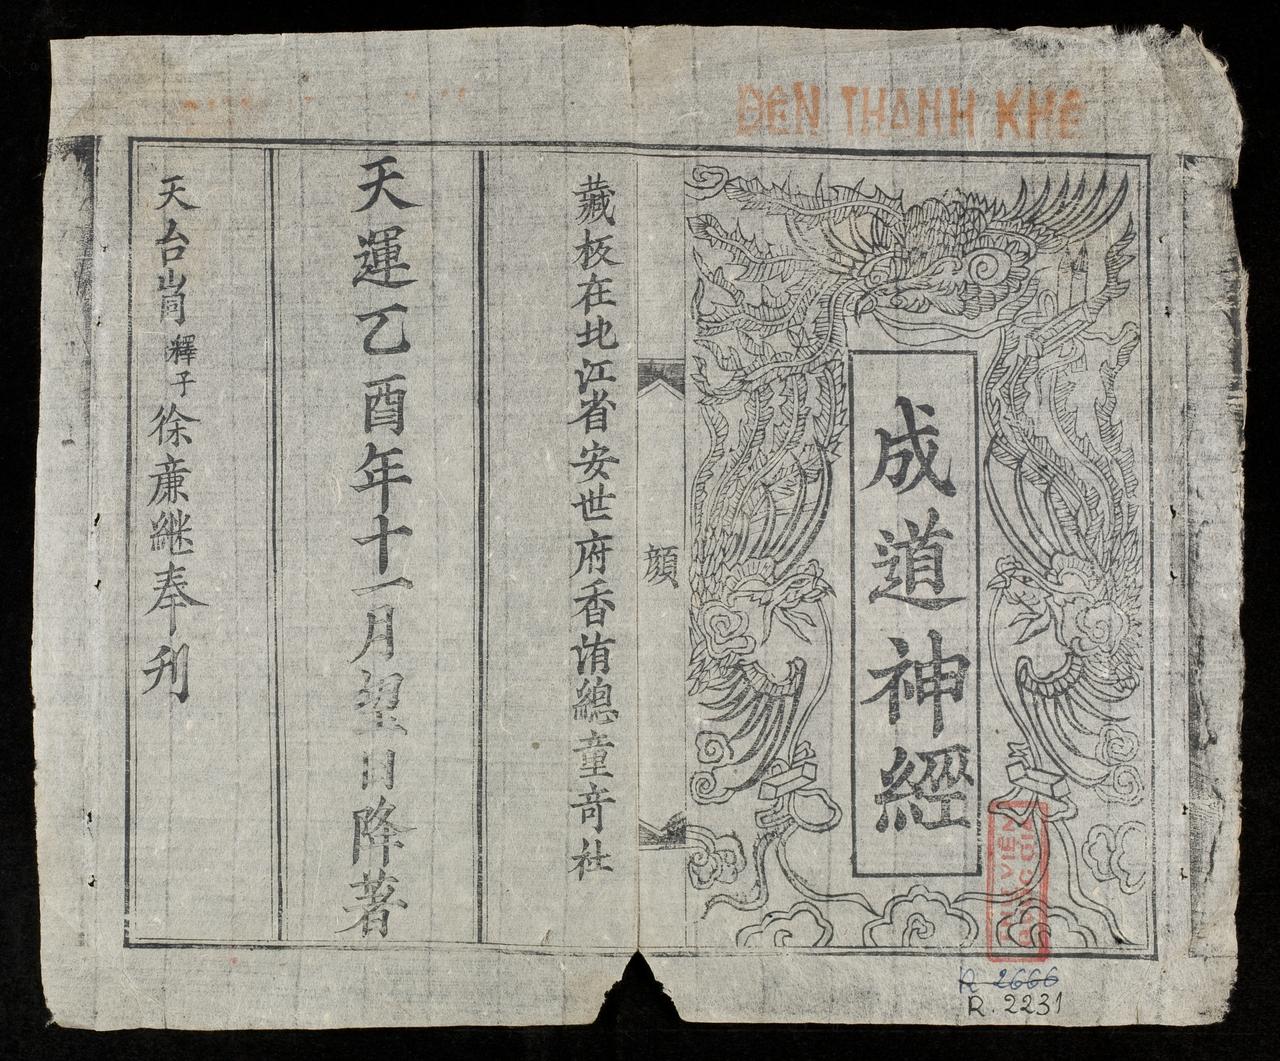 ĐỀN THANH KHÊ
成道神經
THƯ VIỆN
QUỐC GIA
R 2666
R. 2231
顔
藏板在北江省安世府香洧總童奇社
天運乙酉年十一月望日降著
天台峝釋子徐㢘継奉刊